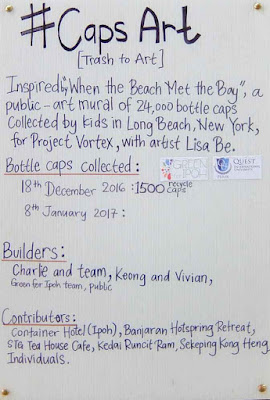 #Caps Art
[Trash to Art]
Inspired by "When the Beach Met the Bay", a
public-art mural of 24,000 bottle caps
Collected by kids in Long Beach, New York,
for Project Vortex, with artist Lisa Be.
Bottle caps collected:
GREEN IPOH
QUEST
18th December 2016 :1500 recycle caps
8th January 2017:
Builders:
Charlie and team, Keong and Vivian,
Green for Ipoh team, public
Contributors:
Container Hotel (Ipoh), Banjaran Hotspring Retreat,
STG Tea House Cafe, Kedai Runcit Ram, Sekeping Kong Heng
Individuals.